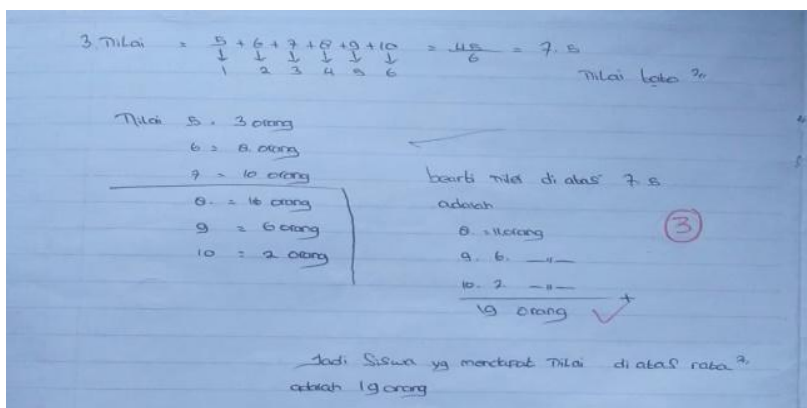 3. Nilai = 5 + 6 + 7 + 8 + 9 + 10 = 45/6 = 7.5
↓ ↓ ↓ ↓ ↓ ↓
1 2 3 4 5 6
Nilai rata ²,,
Nilai 5 = 3 orang
6 = 8 orang
7 = 10 orang
8 = 16 orang
9 = 6 orang
10 = 2 orang
bearti nilai di atas 7.5
adalah
8. = 11 orang
9. 6. —"—
10. 2 —"—
+
19 orang
3
Jadi Siswa yg mendapat Nilai di atas rata ²,
adalah 19 orang